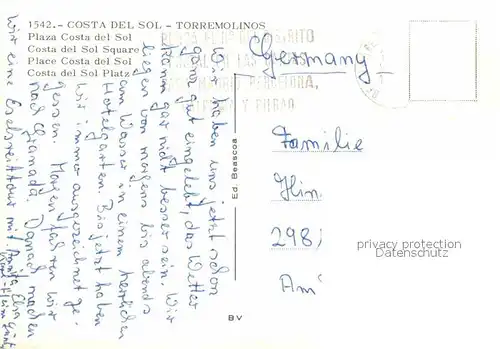 1542.- COSTA DEL SOL - TORREMOLINOS
Plaza Costa del Sol
Costa del Sol Square
Place Costa del Sol
Costa del Sol Platz
Wir haben uns jetzt schon
ganz gut eingelebt, das Wetter
kann gar nicht besser sein. Wir
liegen von morgens bis abends
am Wasser in einem herrlichen
Hotelgarten. Bis jetzt haben
wir immer ausgezeichnet ge-
gessen. Morgen fahren wir
nach Granada. Danach machen
wir eine Eselsreittour mit.
Germany
Familie
Hin
298
Am
Ed. Beascoa
BV
privacy protection
Datenschutz